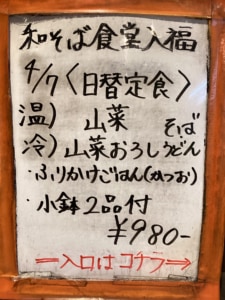 和そば食堂入福
4/7〈日替定食〉
温) 山菜 そば
冷) 山菜おろし うどん
・ふりかけごはん(かつお)
・小鉢2品付
¥980-
入口はコチラ→